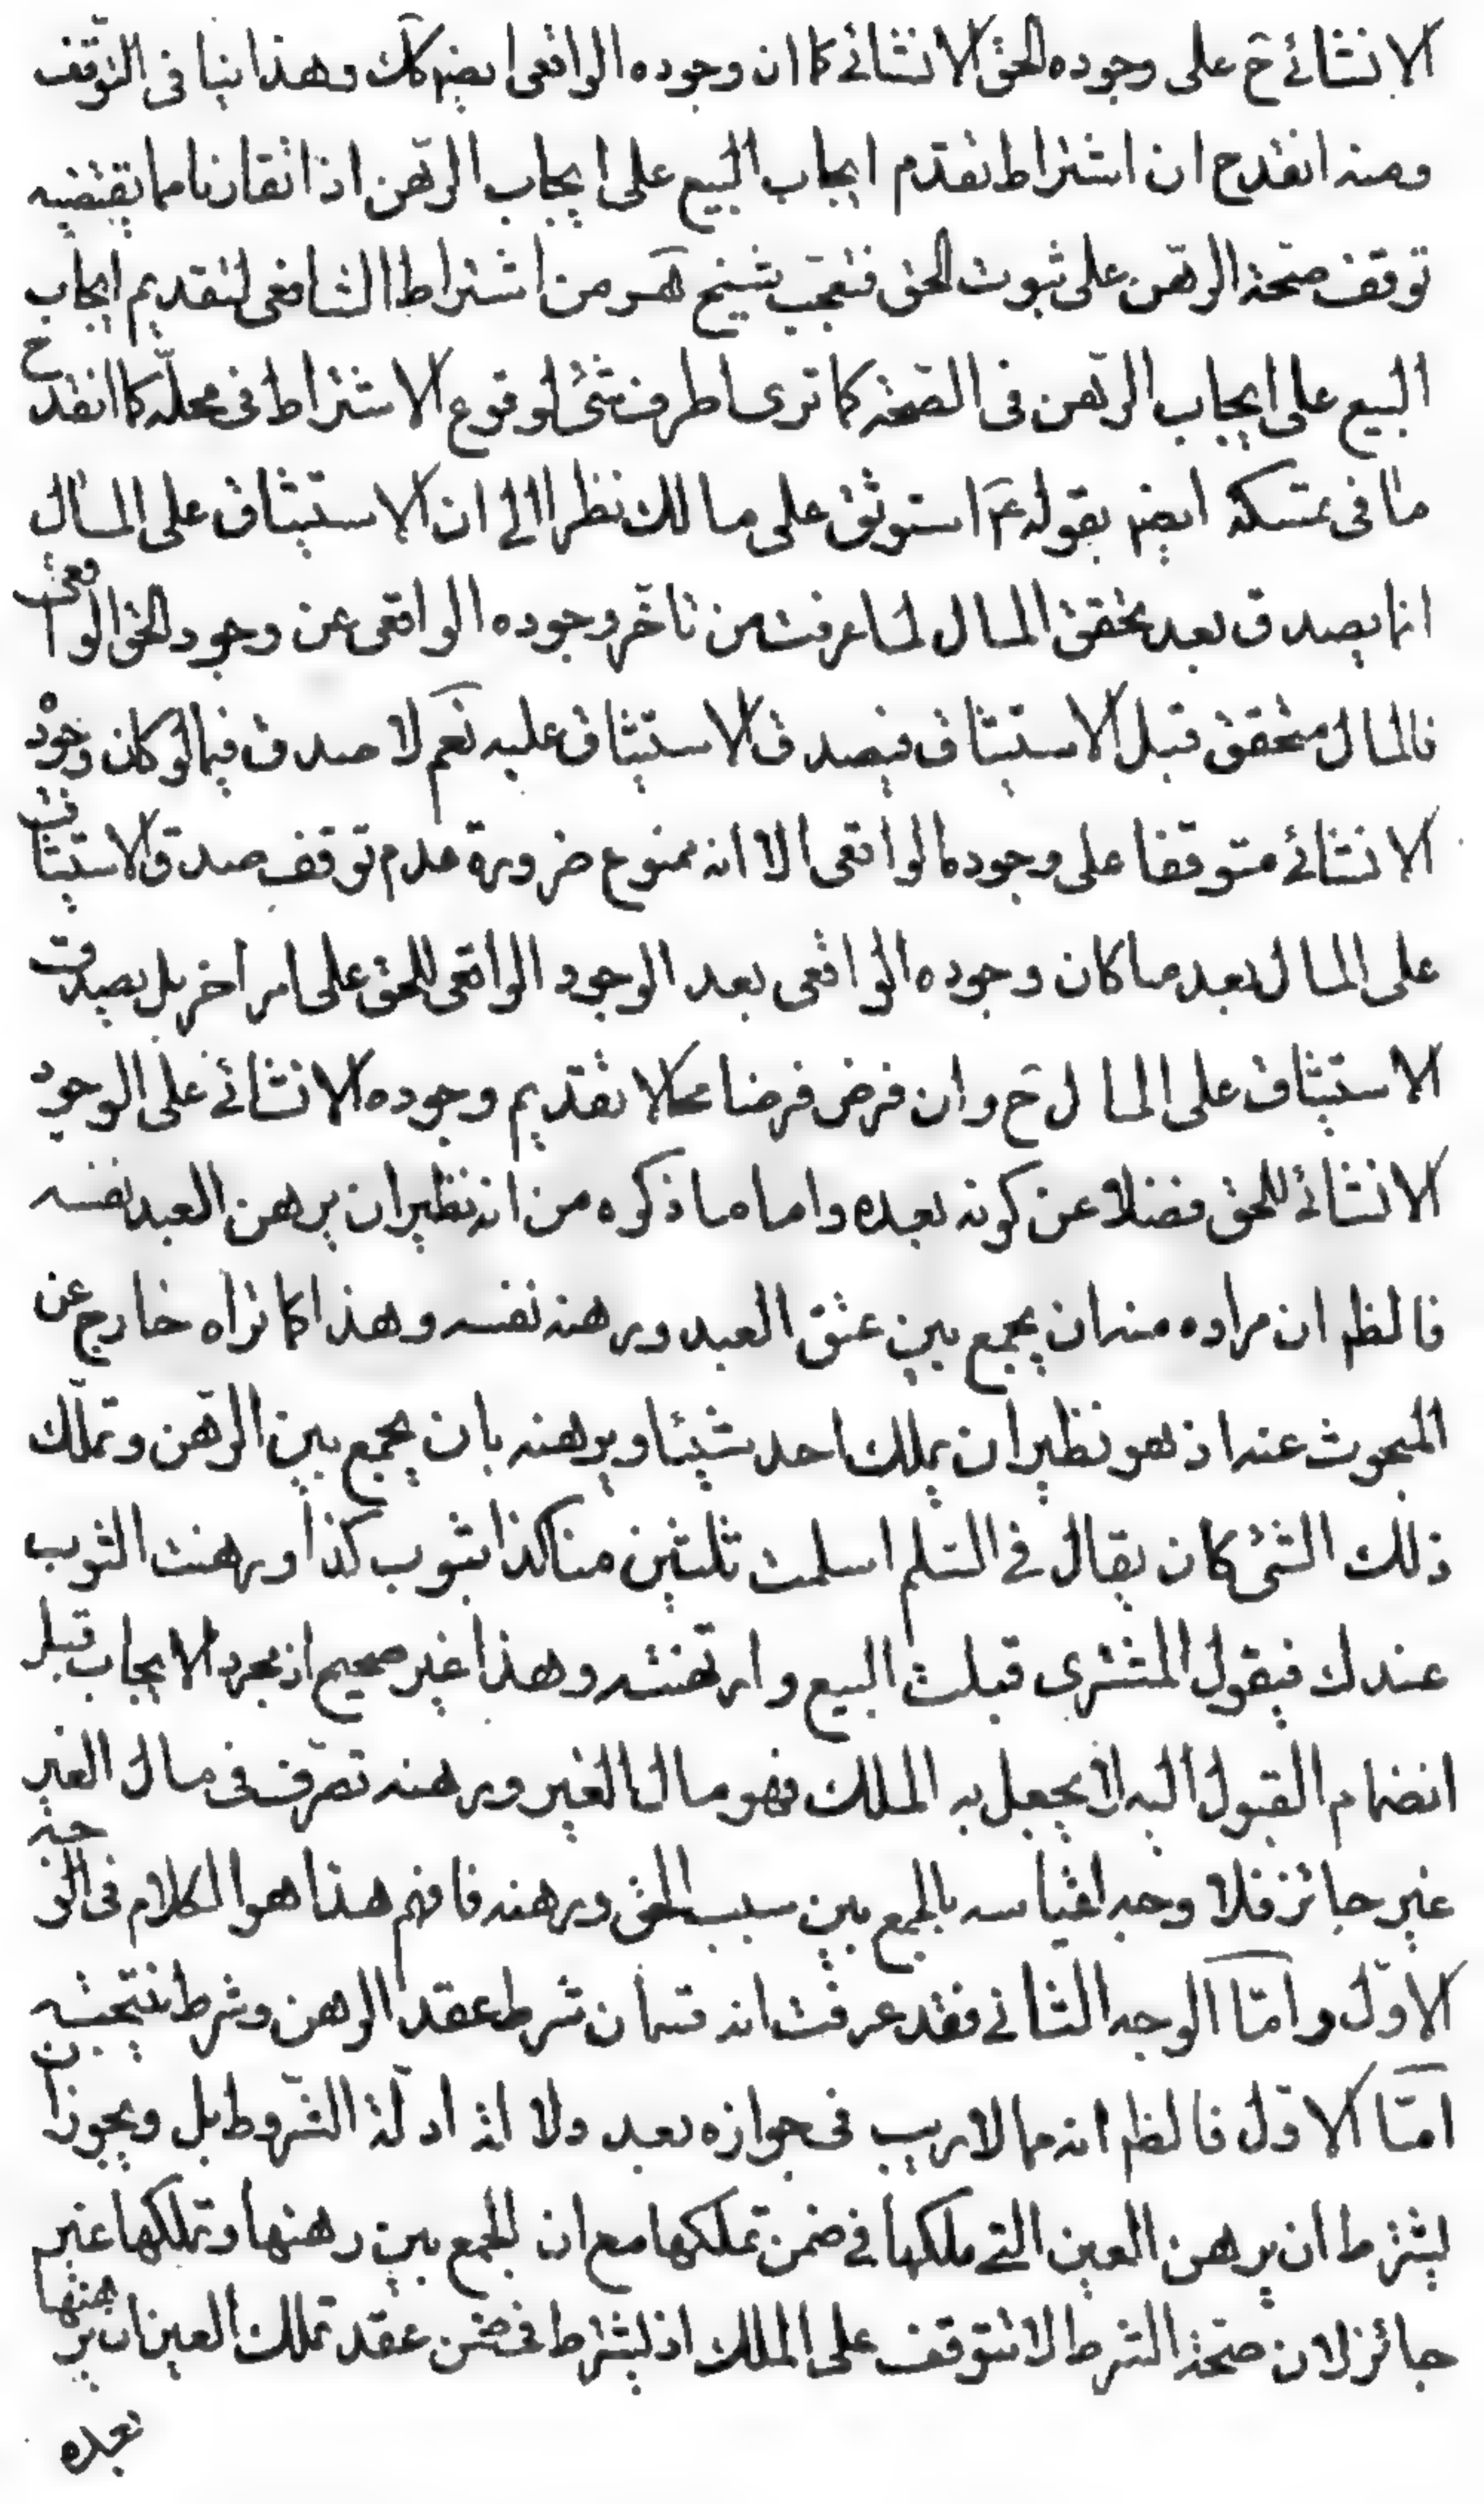 الانشائے ح على وجوده الحق الانشائے كما ان وجوده الواقعى ايضہ كك وهذا ينا فى التوقف
ومنه انقدح ان اشتراط تقدم ايجاب البيع على ايجاب الرّهن اذا تقارنا مما يقتضيه
توقف صحّة الرهن على ثبوت الحق فتعجّب شيخ هَر من اشتراط الشافعى لتقديم ايجاب
البيع على ايجاب الرّهن فى الصّحة كما ترى اطرف شئ لوقوع الاشتراط فى محلّه كما انقدح
ما فى تمسّكه ايضہ بقوله عَم استوثق على مالك نظرا الى ان الاستيثاق على المال
انما يصدق بعد تحقق المال لما عرفت من تاخّر وجوده الواقعى عن وجود الحق الواقعى
فالمال متحقق قبل الاستيثاق فيصدق الاستيثاق عليه نعم لا صدق فيما لو كان وجوده
الانشائے متوقفا على وجوده الواقعى الا انه ممنوع ضرورة عدم توقف صدق الاستيثاق
على المال بعد ما كان وجوده الواقعى بعد الوجود الواقعى للحق على امر اخر بل يصدق
الاستيثاق على المال ح وان فرض فرضا محالا تقديم وجوده الانشائے على الوجود
الانشائے للحق فضلا عن كونه بعده واما ما ذكره من انه نظير ان يرهن العبد نفسه
فالظم ان مراده منه ان يجمع بين عتق العبد ورهنه نفسه وهذا كما تراه خارج عن
المبحوث عنه اذ هو نظير ان يملك احد شيئا ويرهنه بان يجمع بين الرّهن وتملّك
ذلك الشئ كان يقال فى السّلم اسلمت ثلثين منا كذا بثوب كذا ورهنت الثوب
عندك فيقول المشترى قبلت البيع وارتهنته وهذا غير صحيح اذ مجرد الايجاب قبل
انضمام القبول اليه لا يجعل به الملك فهو مال الغير ورهنه تصرّف فى مال الغير
غير جائز فلا وجه لقياسه بالجمع بين سبب الحق ورهنه فافهم هذا هو الكلام فى الوجه
الاوّل وامّا الوجه الثانے فقد عرفت انه قسمان شرط عقد الرهن وشرط نتيجته
امّا الاوّل فالظم انه مما لا ريب فى جوازه بعد ولا لة ادلّة الشّروط بل ويجوز ان
يشترط ان يرهن العين التے ملكها فے ضمن تملكها مع ان الجمع بين رهنها وتملكها غير
جائز لان صحّة الشرط لا تتوقف على الملك اذ يشترط فى ضمن عقد تملك العين ان يرهنها
بعده